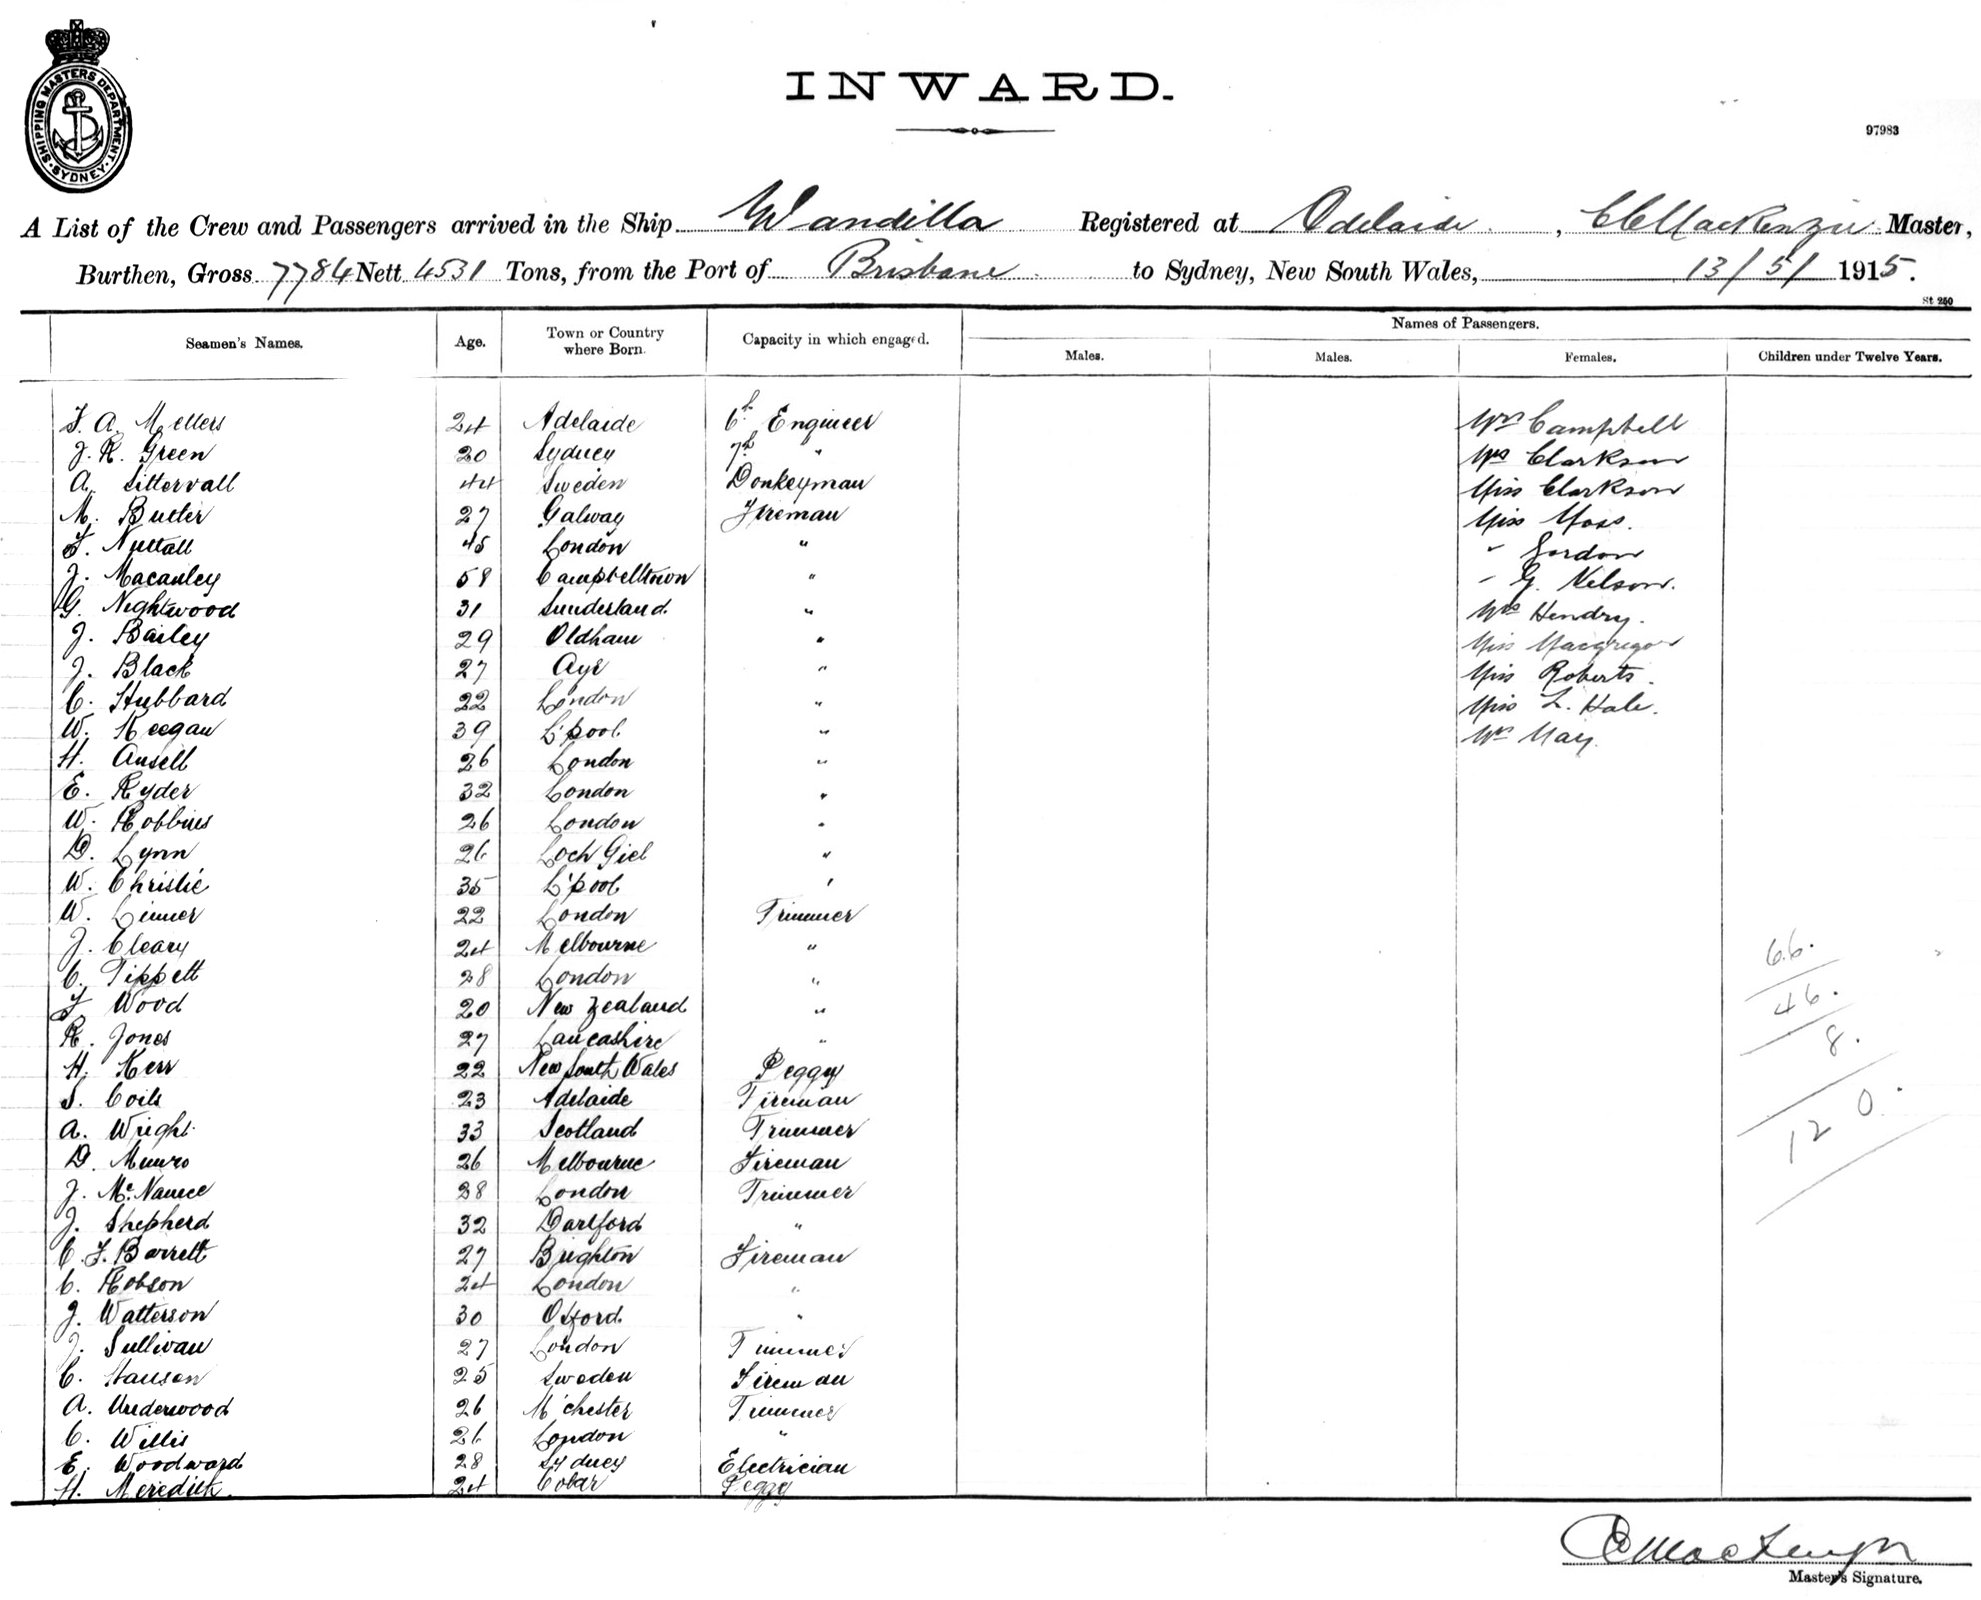 SHIPPING MASTERS DEPARTMENT. SYDNEY
INWARD.
97983
A List of the Crew and Passengers arrived in the Ship Wandilla Registered at Adelaide, CC MacKenzie Master,
Burthen, Gross 7784 Nett 4531 Tons, from the Port of Brisbane to Sydney, New South Wales, 13/5/1915.
St 250
Names of Passengers.
Seamen's Names. Age. Town or Country where Born. Capacity in which engaged. Males. Males. Females. Children under Twelve Years.
F. A. Mellers 24 Adelaide 6th Engineer Mrs Campbell
J. R. Green 20 Sydney 7th " Mrs Clarkson
A. Sittervall 44 Sweden Donkeyman Miss Clarkson
M. Butler 27 Galway Fireman Miss Moss.
F. Nuttall 45 London " " Gordon
J. Macauley 58 Campbelltown " " G. Nelson.
G. Nightwood 31 Sunderland " Mrs Hendry.
J. Bailey 29 Oldham " Miss Macgregor
J. Black 27 Ayr " Miss Roberts.
C. Hubbard 22 London " Miss L. Hale.
W. Keegan 39 L'pool " Mrs May.
H. Ansell 26 London "
E. Ryder 32 London "
W. Robbins 26 London "
D. Lynn 26 Loch Giel "
W. Christie 35 L'pool "
W. Linner 22 London Trimmer
J. Cleary 24 Melbourne "
C. Tippett 28 London " 66.
F. Wood 20 New Zealand " 46.
R. Jones 27 Lancashire " 8.
H. Kerr 22 New South Wales Peggy
S. Coils 23 Adelaide Fireman
A. Wright 33 Scotland Trimmer 120.
D. Munro 26 Melbourne Fireman
J. McNamee 38 London Trimmer
J. Shepherd 32 Dartford "
C. F. Barrett 27 Brighton Fireman
C. Robson 24 London "
J. Watterson 30 Oxford "
J. Sullivan 27 London Trimmer
C. Hansen 25 Sweden Fireman
A. Underwood 26 M'chester Trimmer
C. Willis 26 London "
E. Woodward 28 Sydney Electrician
H. Meredith. 24 Cobar Peggy
CC MacKenzie
Master's Signature.